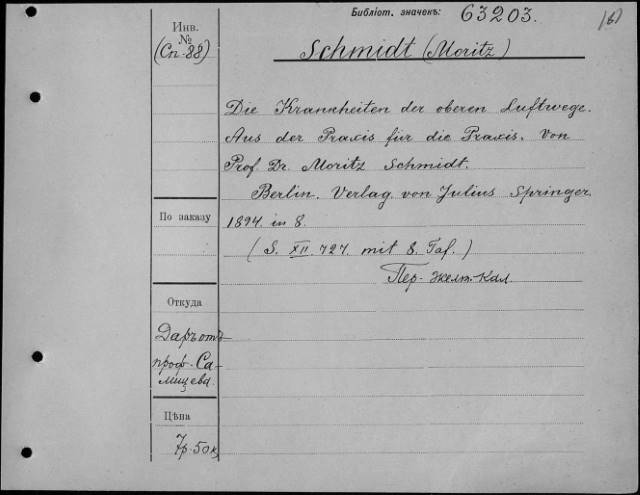 Библіот. значекъ: 63203.
Инв.
№
(Сп. 88)
Schmidt (Moritz)
Die Krankheiten der oberen Luftwege.
Aus der Praxis für die Praxis. Von
Prof. Dr. Moritz Schmidt.
Berlin. Verlag. von Julius Springer.
По заказу
1894. in 8.
(S. XII. 727. mit 8. Taf.)
Пер. желт. кал.
Откуда
Даръ отъ
проф. Са-
лищева.
Цѣна
7р. 50к.